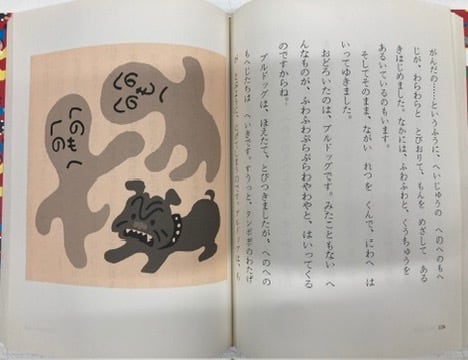 がんだの……というふうに、へいじゅうの へのへのもへ
じが、わらわらと とびおりて、もんを めざして ある
きはじめました。なかには、ふわふわと、くうちゅうを
あるいているのもいます。
そしてそのまま、ながい れつを くんで、にわへ は
いってゆきました。
おどろいたのは、ブルドッグです。みたこともない へ
んなものが、ふわふわぷらぷらわやわやと、はいってくる
のですからね。
ブルドッグは、ほえたて、とびつきましたが、へのへの
もへじたちは へいきです。すうっと、タンポポのわたげ
ブルドッグは、も
へのへのも
へのへのもへ